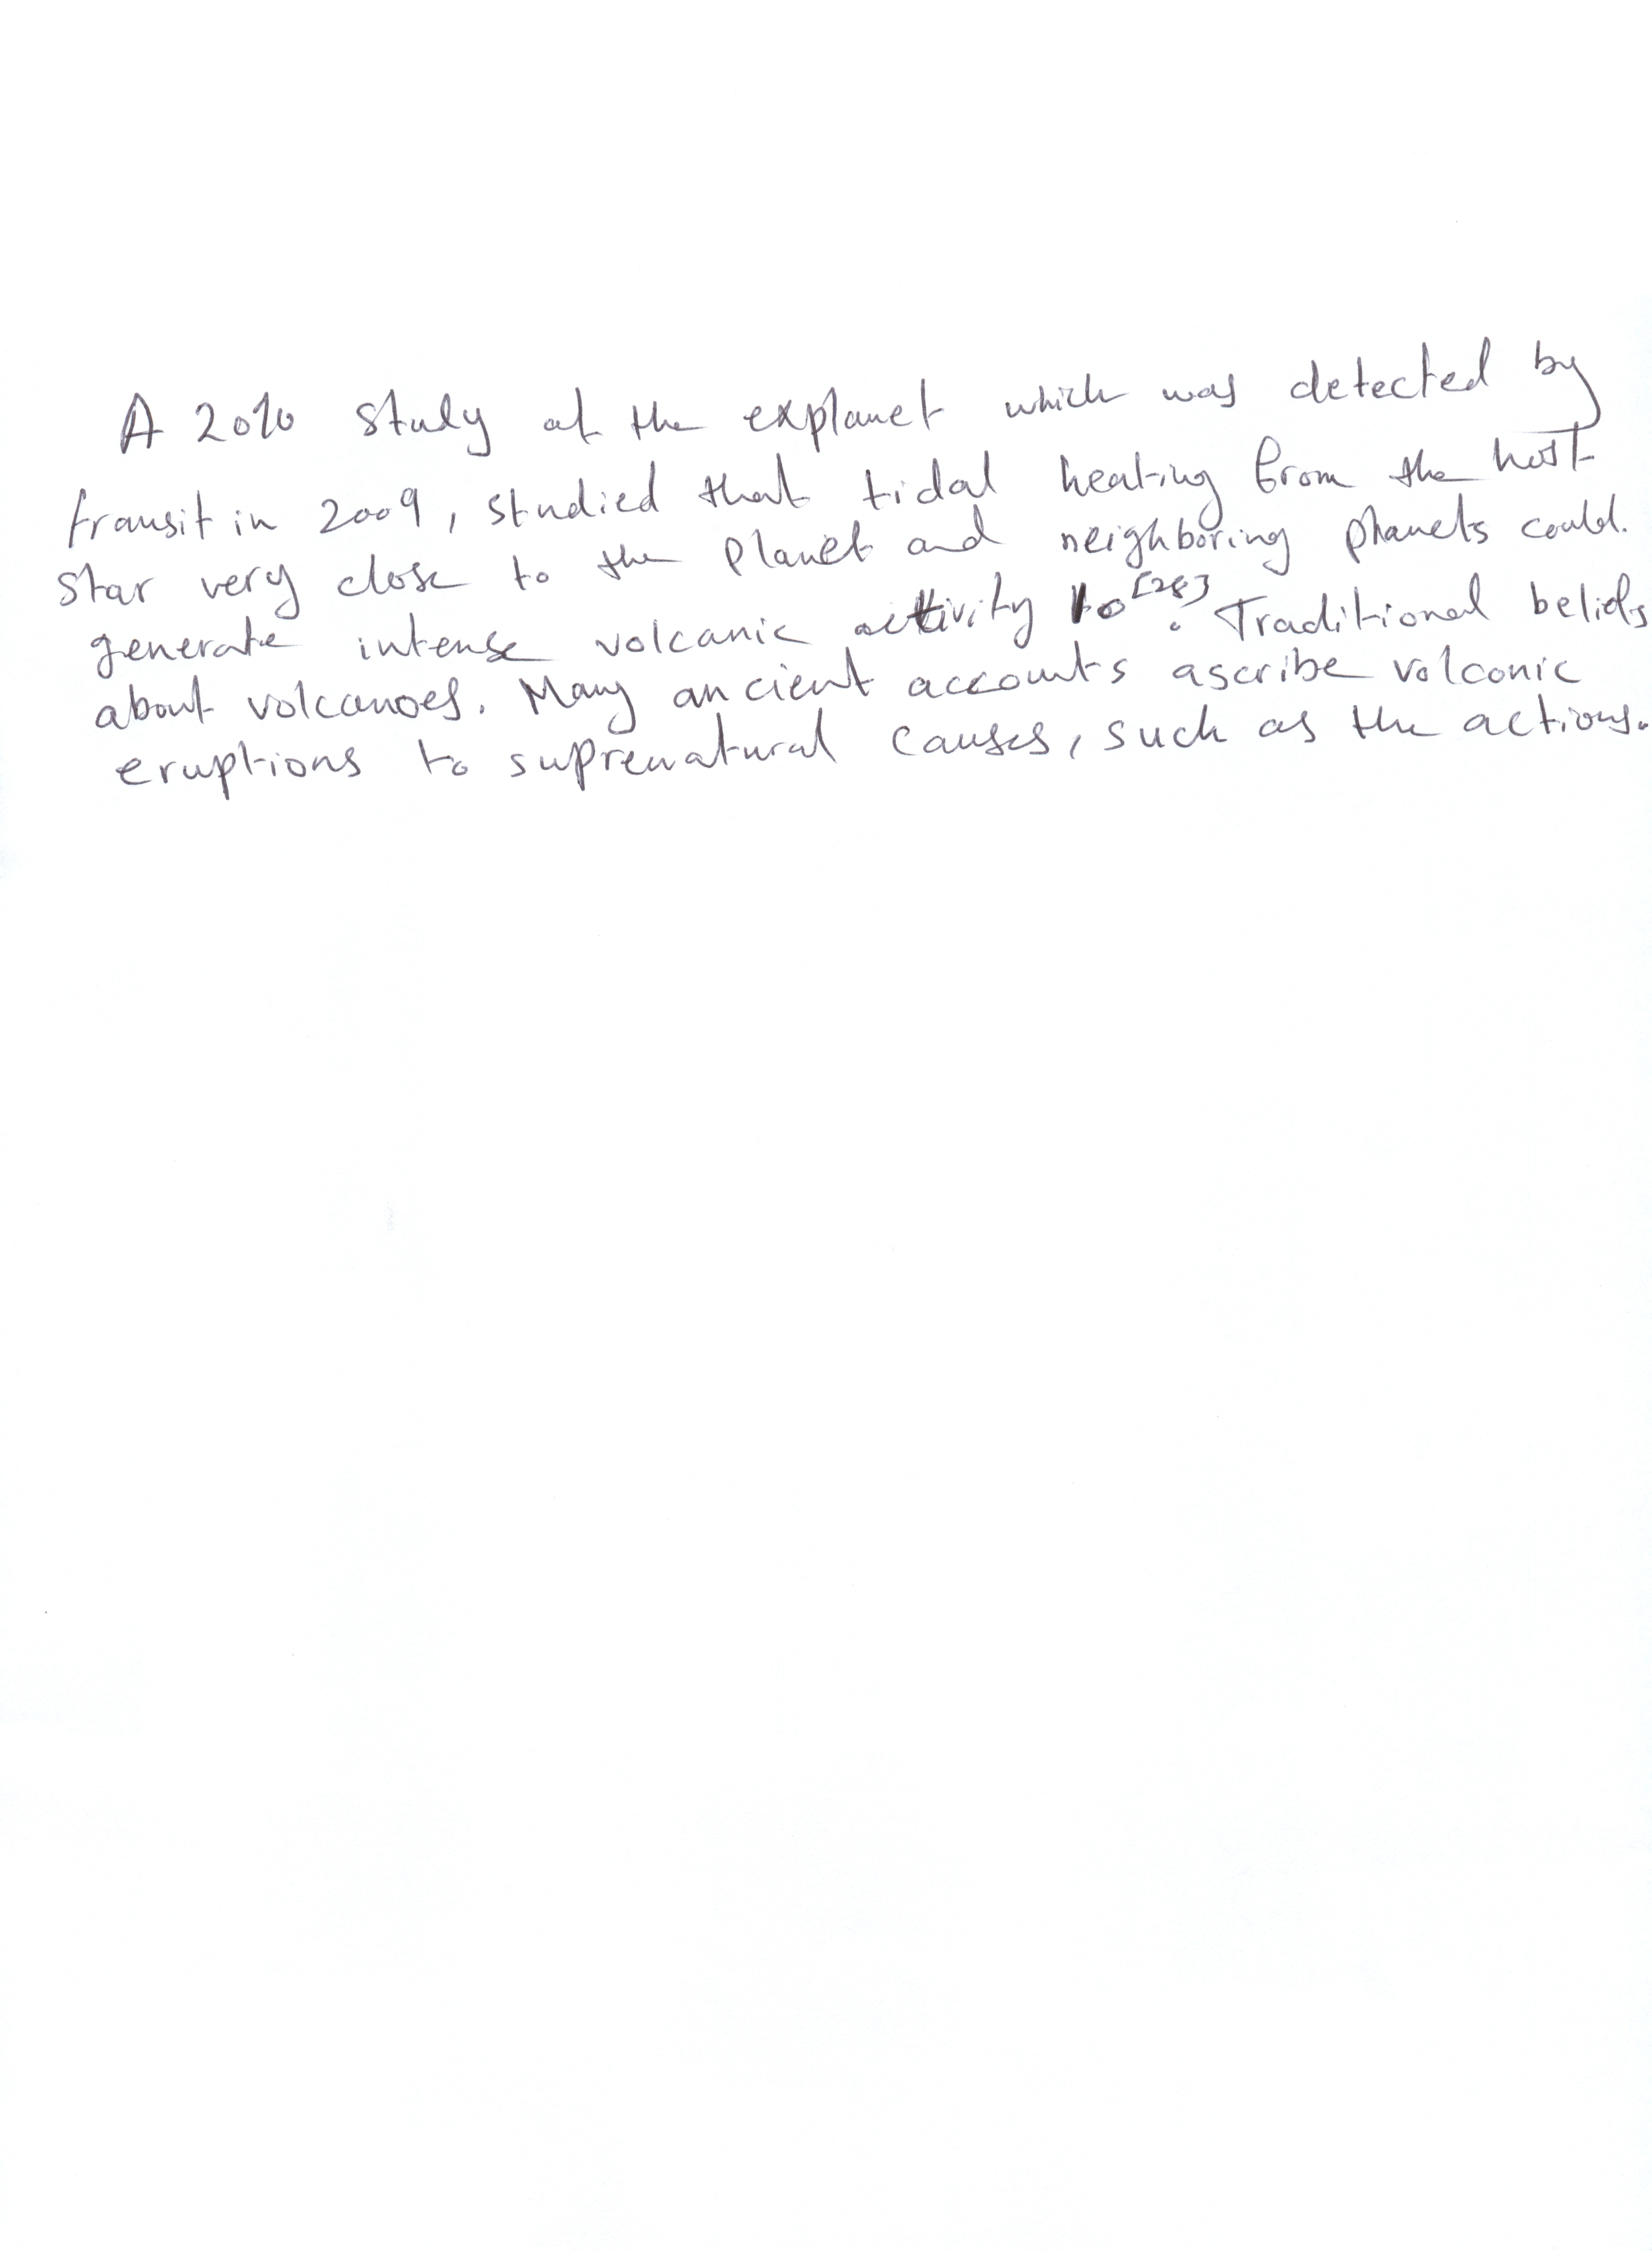 A 2010 study of the explanet which was detected by
transit in 2009, studied that tidal heating from the host
star very close to the planet and neighboring planets could.
generate intense volcanic activity Io[28]. Traditional beliefs
about volcanoes. Many ancient accounts ascribe volconic
eruptions to suprenatural causes, such as the actions.